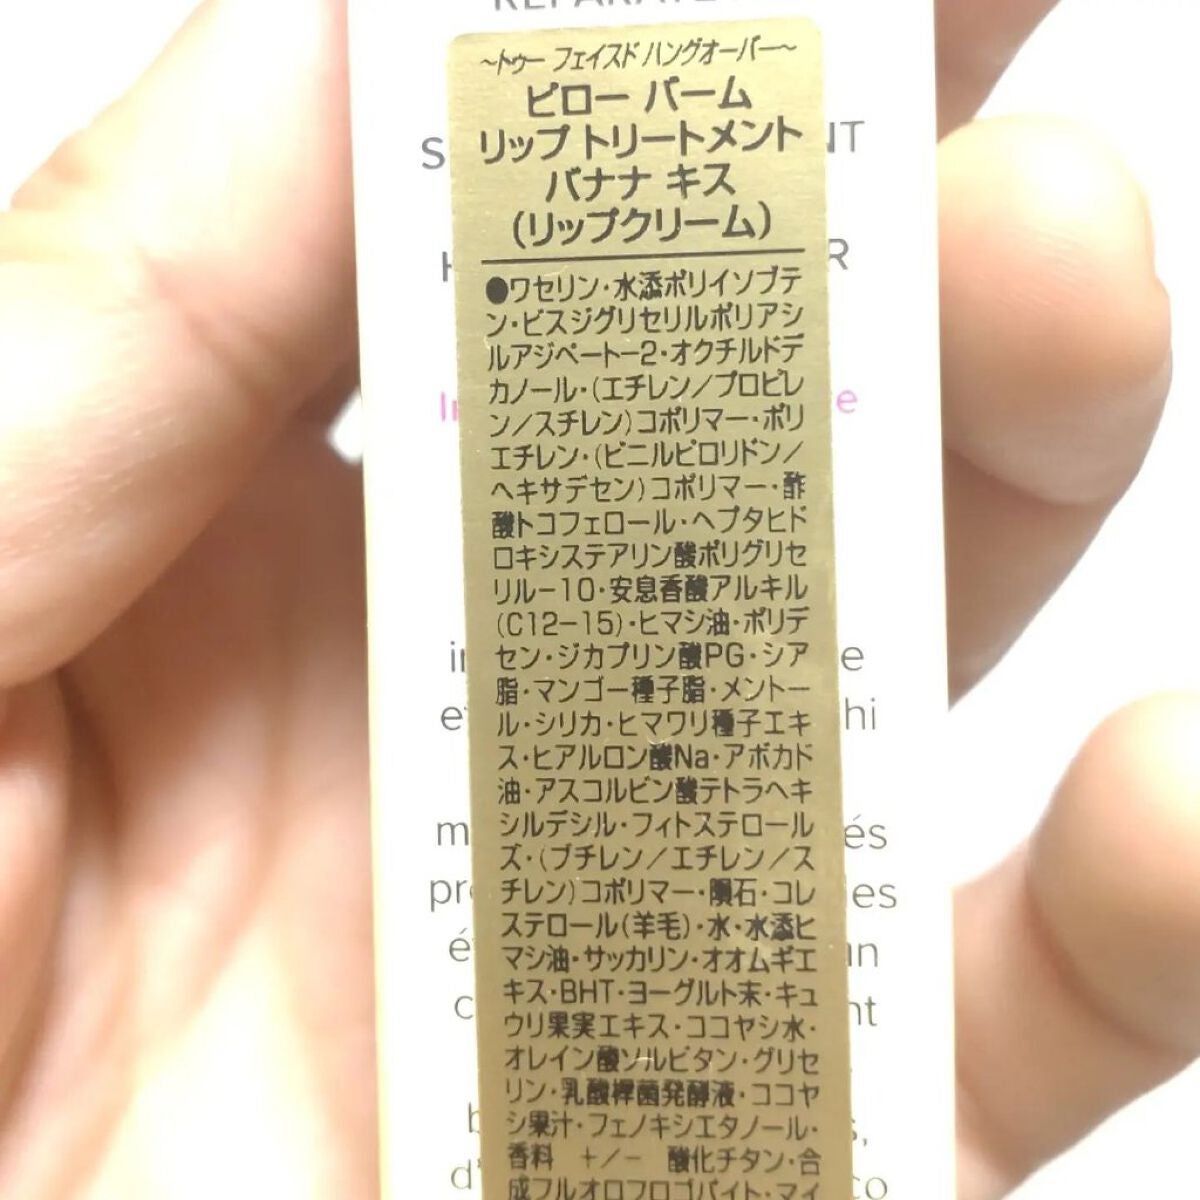 ～トゥー フェイスド ハングオーバー～
ピロー バーム
リップ トリートメント
バナナ キス
(リップクリーム)
●ワセリン・水添ポリイソブテ
ン・ビスジグリセリルポリアシ
ルアジペート－2・オクチルドデ
カノール・(エチレン／プロピレ
ン／スチレン)コポリマー・ポリ
エチレン・(ビニルピロリドン／
ヘキサデセン)コポリマー・酢
酸トコフェロール・ヘプタヒド
ロキシステアリン酸ポリグリセ
リル－10・安息香酸アルキル
(C12－15)・ヒマシ油・ポリデ
セン・ジカプリン酸PG・シア
脂・マンゴー種子脂・メントー
ル・シリカ・ヒマワリ種子エキ
ス・ヒアルロン酸Na・アボカド
油・アスコルビン酸テトラヘキ
シルデシル・フィトステロール
ズ・(ブチレン／エチレン／ス
チレン)コポリマー・隕石・コレ
ステロール(羊毛)・水・水添ヒ
マシ油・サッカリン・オオムギエ
キス・BHT・ヨーグルト末・キュ
ウリ果実エキス・ココヤシ水・
オレイン酸ソルビタン・グリセ
リン・乳酸桿菌発酵液・ココヤ
シ果汁・フェノキシエタノール・
香料　＋／－　酸化チタン・合
成フルオロフロゴパイト・マイ